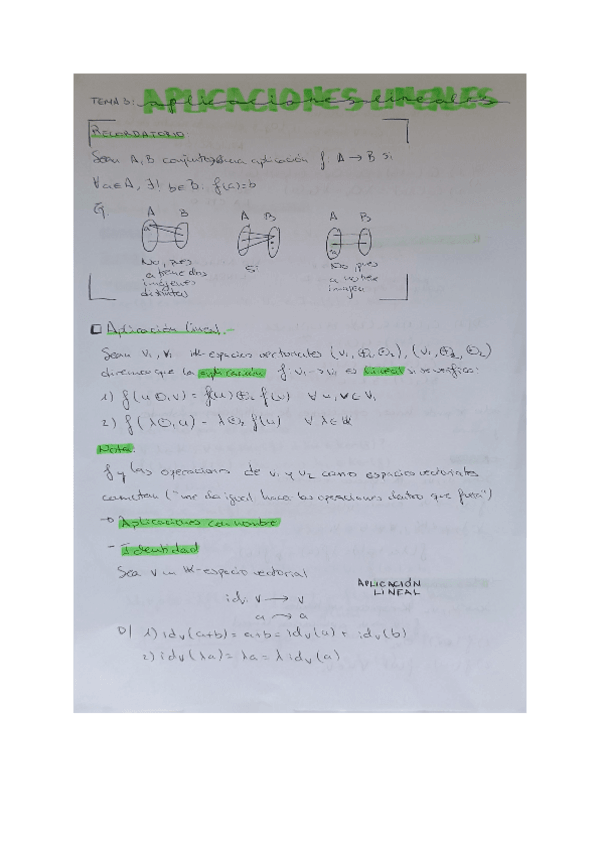 TEMA 3: aplicaciones lineales
APLICACIONES LINEALES
RECORDATORIO
Sean A, B conjuntos, una aplicación f: A → B si
∀a∈A, ∃! b∈B: f(a)=b
Ej.
A B A B A B
No, pues
a tiene dos
imágenes
distintas
Si
No, pues
a no tiene
imagen
Aplicación lineal.-
Sean V₁, V₂ K-espacios vectoriales (V₁, ⊕₁, ⊙₁), (V₂, ⊕₂, ⊙₂)
diremos que la aplicación f: V₁ → V₂ es lineal si se verifica:
1) f(u ⊕₁ v) = f(u) ⊕₂ f(v) ∀ u, v ∈ V₁
2) f(λ ⊙₁ u) = λ ⊙₂ f(u) ∀ λ ∈ K
Nota:
f y las operaciones de V₁ y V₂ como espacios vectoriales
conmutan ("me da igual hacer las operaciones dentro que fuera")
→ Aplicaciones con nombre
- Identidad
Sea V un K-espacio vectorial
idᵥ: V → V
a ⇝ a
APLICACIÓN
LINEAL
D/ 1) idᵥ(a+b) = a+b = idᵥ(a) + idᵥ(b)
2) idᵥ(λa) = λa = λ idᵥ(a)